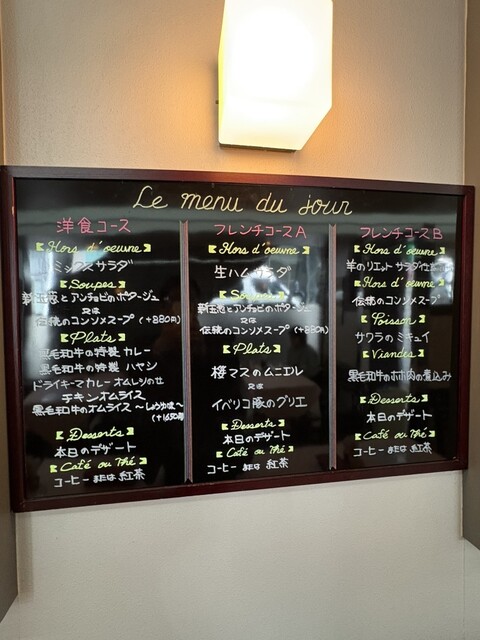 Le menu du jour
洋食コース
Hors d'oeuvre
ミックスサラダ
Soupes
新玉葱とアンチョビのポタージュ
又は
伝統のコンソメスープ (+880円)
Plats
黒毛和牛の特製 カレー
黒毛和牛の特製 ハヤシ
ドライキーマカレー オムレツのせ
チキンオムライス
黒毛和牛のオムライス
(+1650円)
Desserts
本日のデザート
Café ou Thé
コーヒー または 紅茶
フレンチコースA
Hors d'oeuvre
生ハムサラダ
新玉葱とアンチョビのポタージュ
又は
伝統のコンソメスープ (+880円)
Plats
桜マスのムニエル
又は
イベリコ豚のグリエ
Desserts
本日のデザート
Café ou Thé
コーヒー または 紅茶
フレンチコースB
Hors d'oeuvre
羊のリエット サラダ仕立て
Hors d'oeuvre
伝統のコンソメスープ
Poisson
サワラのミキュイ
Viandes
黒毛和牛のホホ肉の煮込み
Desserts
本日のデザート
Café ou Thé
コーヒー または 紅茶